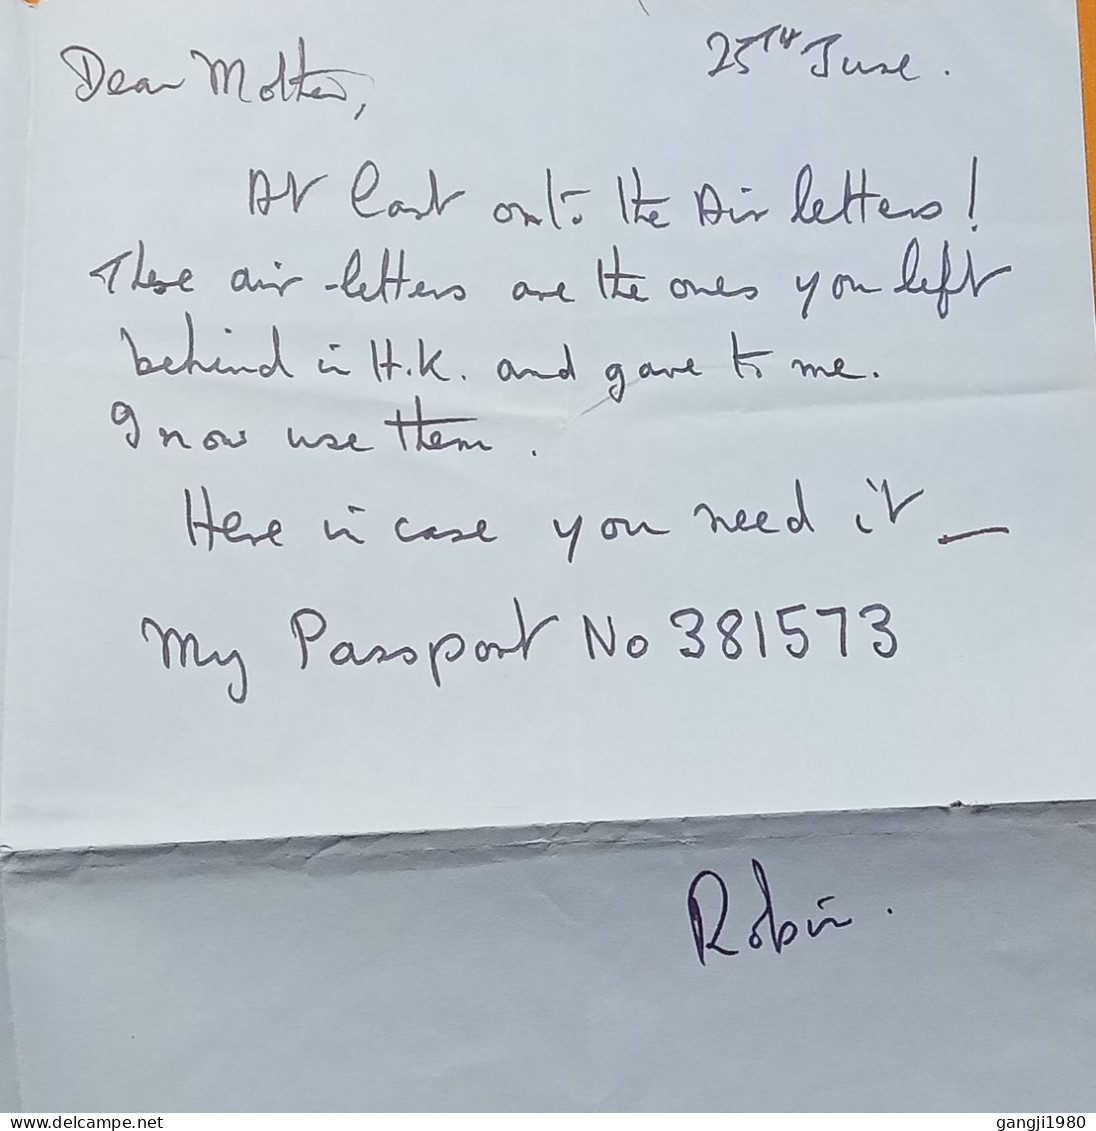 25TH June.
Dear Mother,
At last onto the Air letters!
These air-letters are the ones you left
behind in H.K. and gave to me.
I now use them.
Here in case you need it —
My Passport No 381573
Robin.
delcampe.net
gangji1980